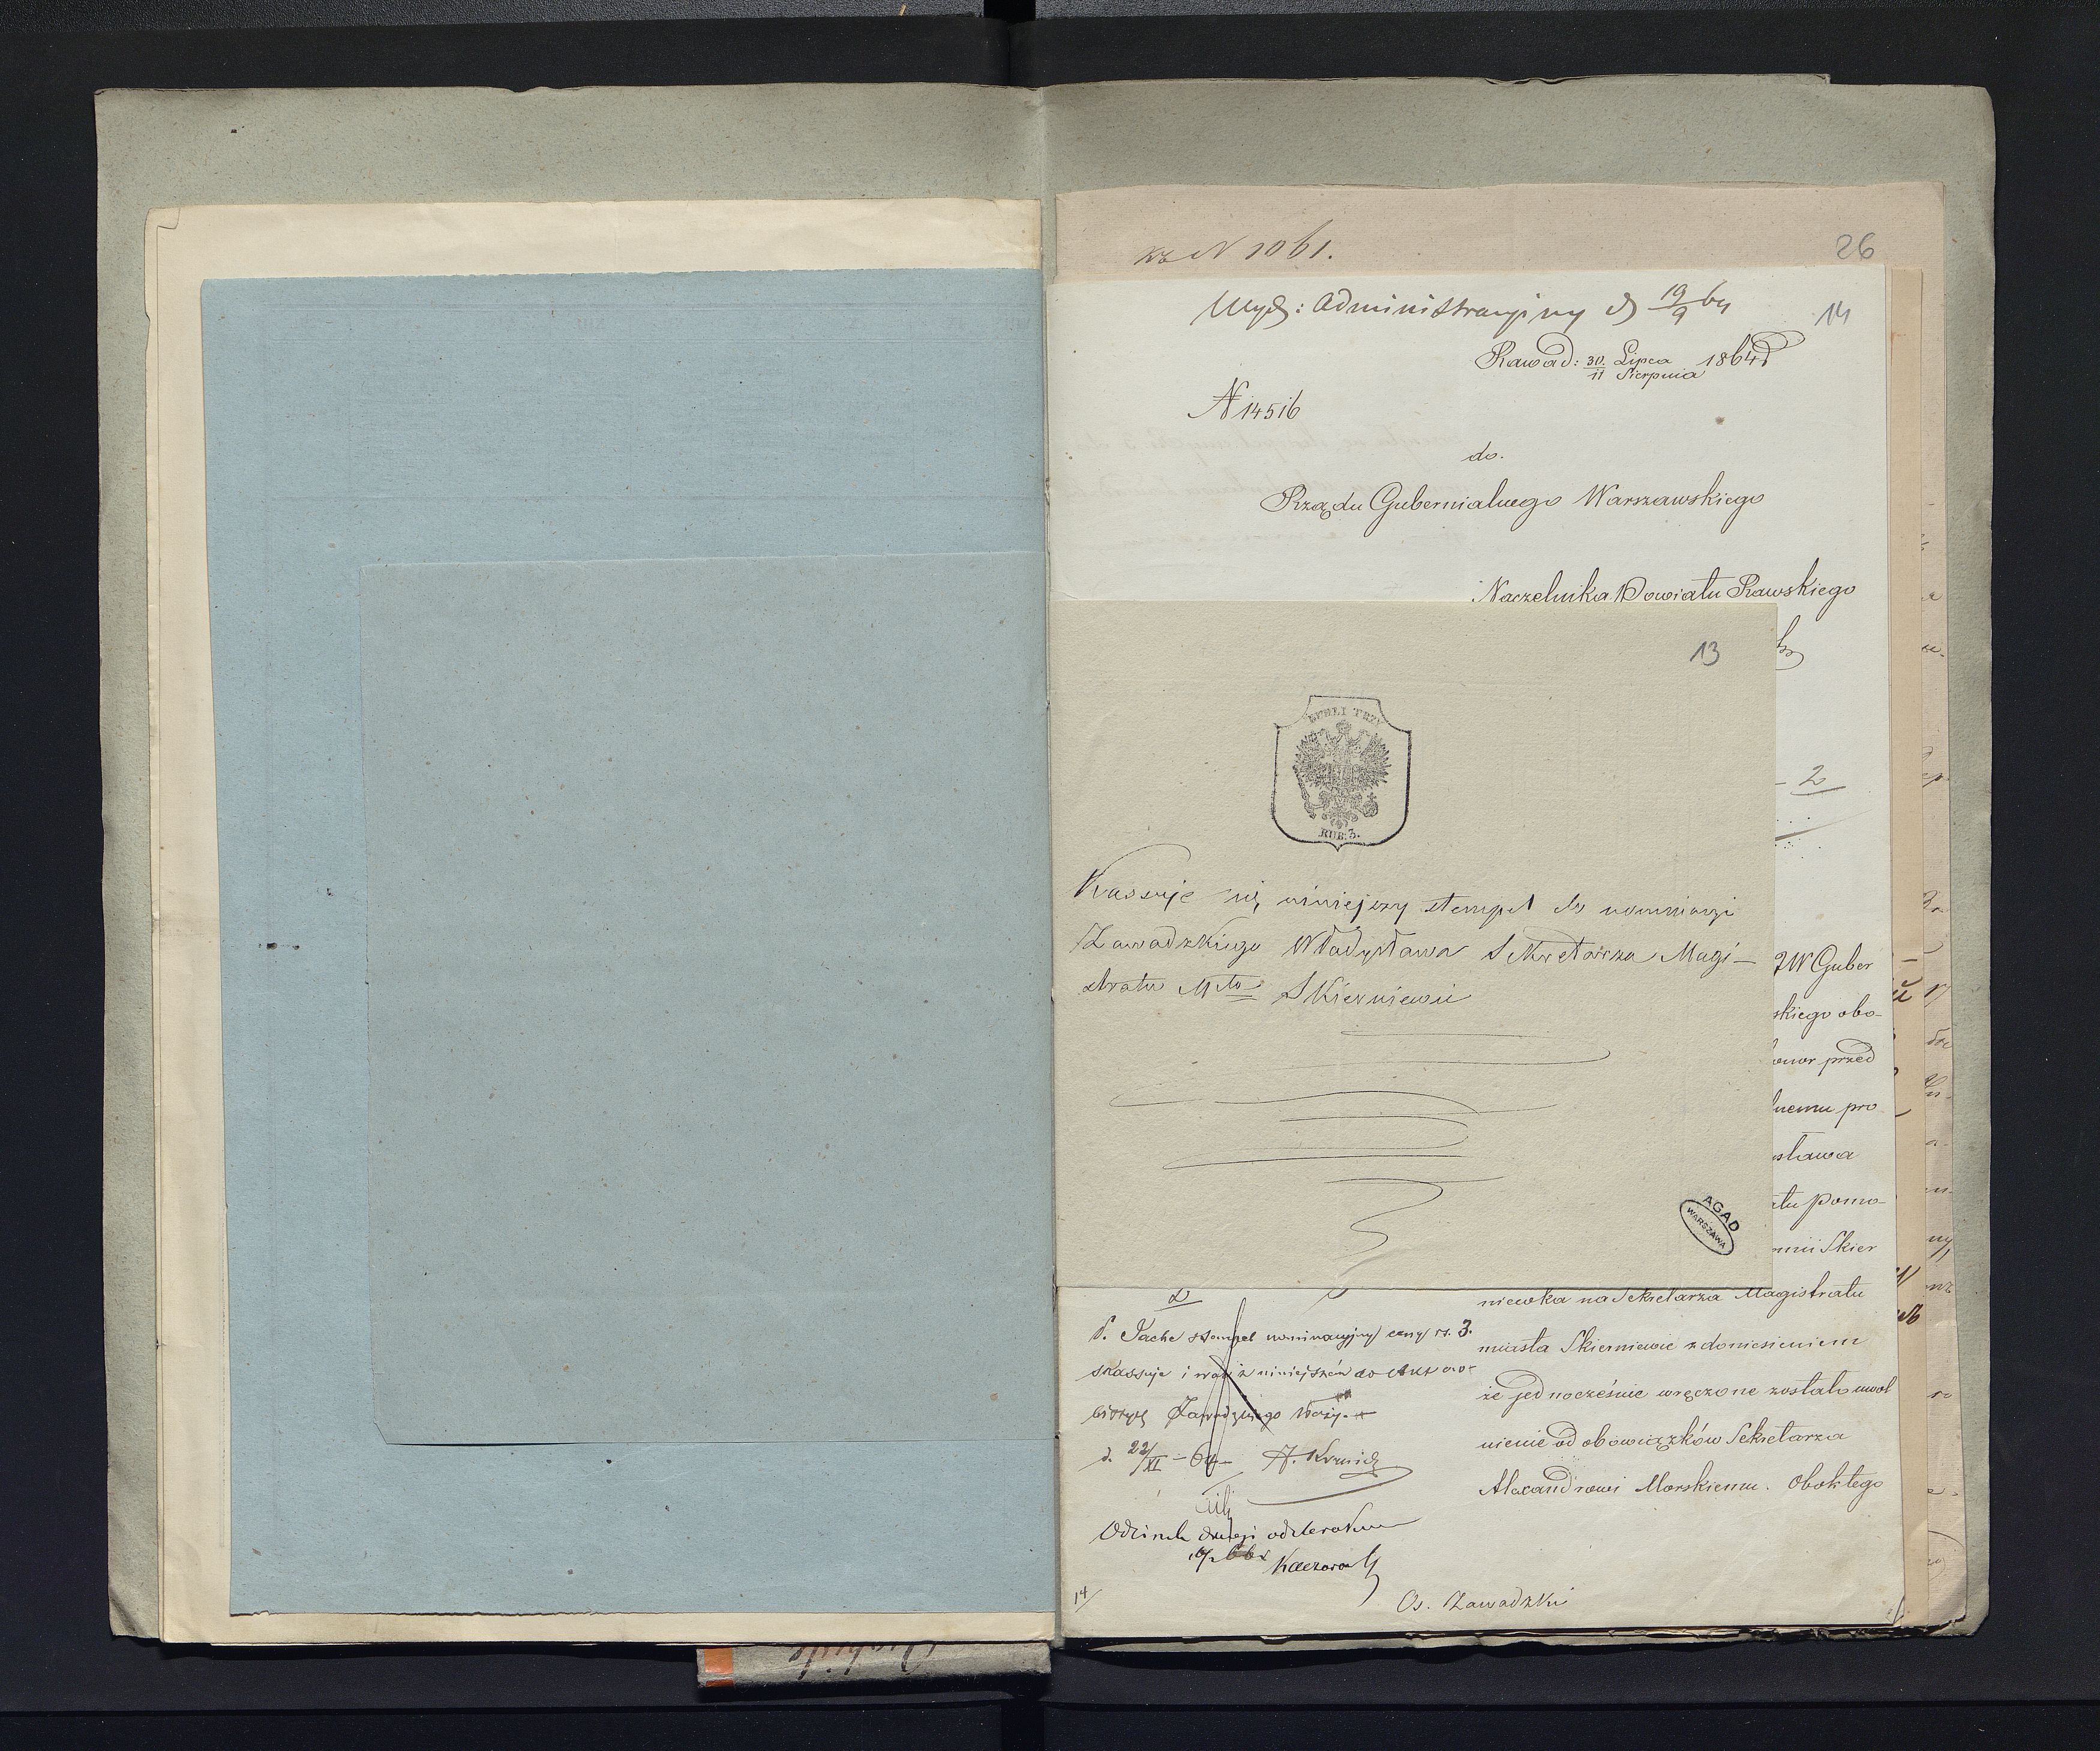 N 1061.
26
Wydz: Administracyjny d 19/9 64
14
Rawa d: 30 Lipca / 11 Sierpnia 1864 r
N 14516
do.
Rządu Gubernialnego Warszawskiego
Naczelnika Powiatu Rawskiego
13
RUBLI TRZY
RUB: 3.
Kassuje się niniejszy stempel do nominacyi
Zawadzkiego Władysława Sekretarza Magi-
stratu Mta Skierniewic
AGAD
WARSZAWA
2
JW Guber
skiego obo-
honor przed
lnemu pro
sława
atu pomo-
Skier
niewka na Sekretarza Magistratu
miasta Skierniewic z doniesieniem
że jednocześnie wręczone zostało uwol
nienie od obowiązków Sekretarza
Alexandrowi Morskiemu. Obok tego
2
stempel nominacyjny ceny rs. 3.
skassuje i niniejszém do
Zawadzkiego
d. 22/XI - 64 -
drugi odebrałem
14/
Os. Zawadzki